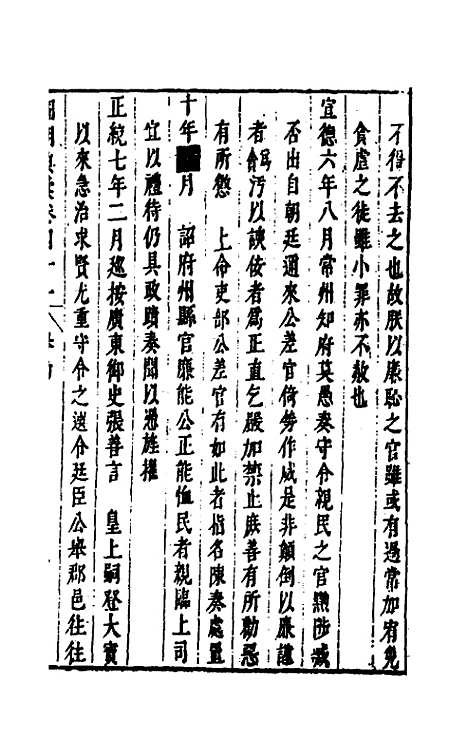 不得不去之也故朕以廉恥之官雖或有過常加宥免
貪虐之徒雖小罪亦不赦也
宣德六年八月常州知府莫愚奏守令親民之官黜陟臧
否出自朝廷邇來公差官倚勢作威是非顛倒以廉謹
者爲貪汚以諛佞者爲正直乞嚴加禁止庶善有所勸惡
有所懲 上命吏部公差官有如此者指名陳奏處置
十年 月 詔府州縣官廉能公正能恤民者親臨上司
宜以禮待仍具政蹟奏聞以憑旌擢
正統七年二月巡按廣東御史張善言 皇上嗣登大寶
以來急治求賢尤重守令之選令廷臣公舉郡邑往往